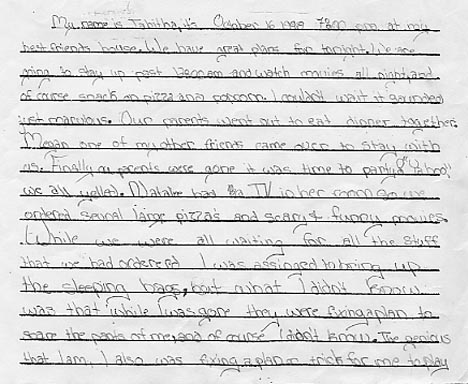 My name is Tabitha, it's October 16 1999 7:30 pm at my
best friends house. We have great plans for tonight. We are
going to stay up past 12:00 am and watch movies all night, and
of course snack on pizza and popcorn. I couldn't wait it sounded
just marvulous. Our parents went out to eat dinner together.
Megan one of my other friends came over to stay with
us. Finally our parents were gone it was time to party "Yahoo!"
we all yelled. Natalie had a TV in her room so we
ordered several large pizza's and scary & funny movies.
While we were all waiting for all the stuff
that we had ordered I was assinged to bring up
the sleeping bags, but what I didn't know
was that while I was gone they were fixing a plan to
scare the pants of me, and of course I didn't know. The genious
that I am, I also was fixing a plan or trick for me to play